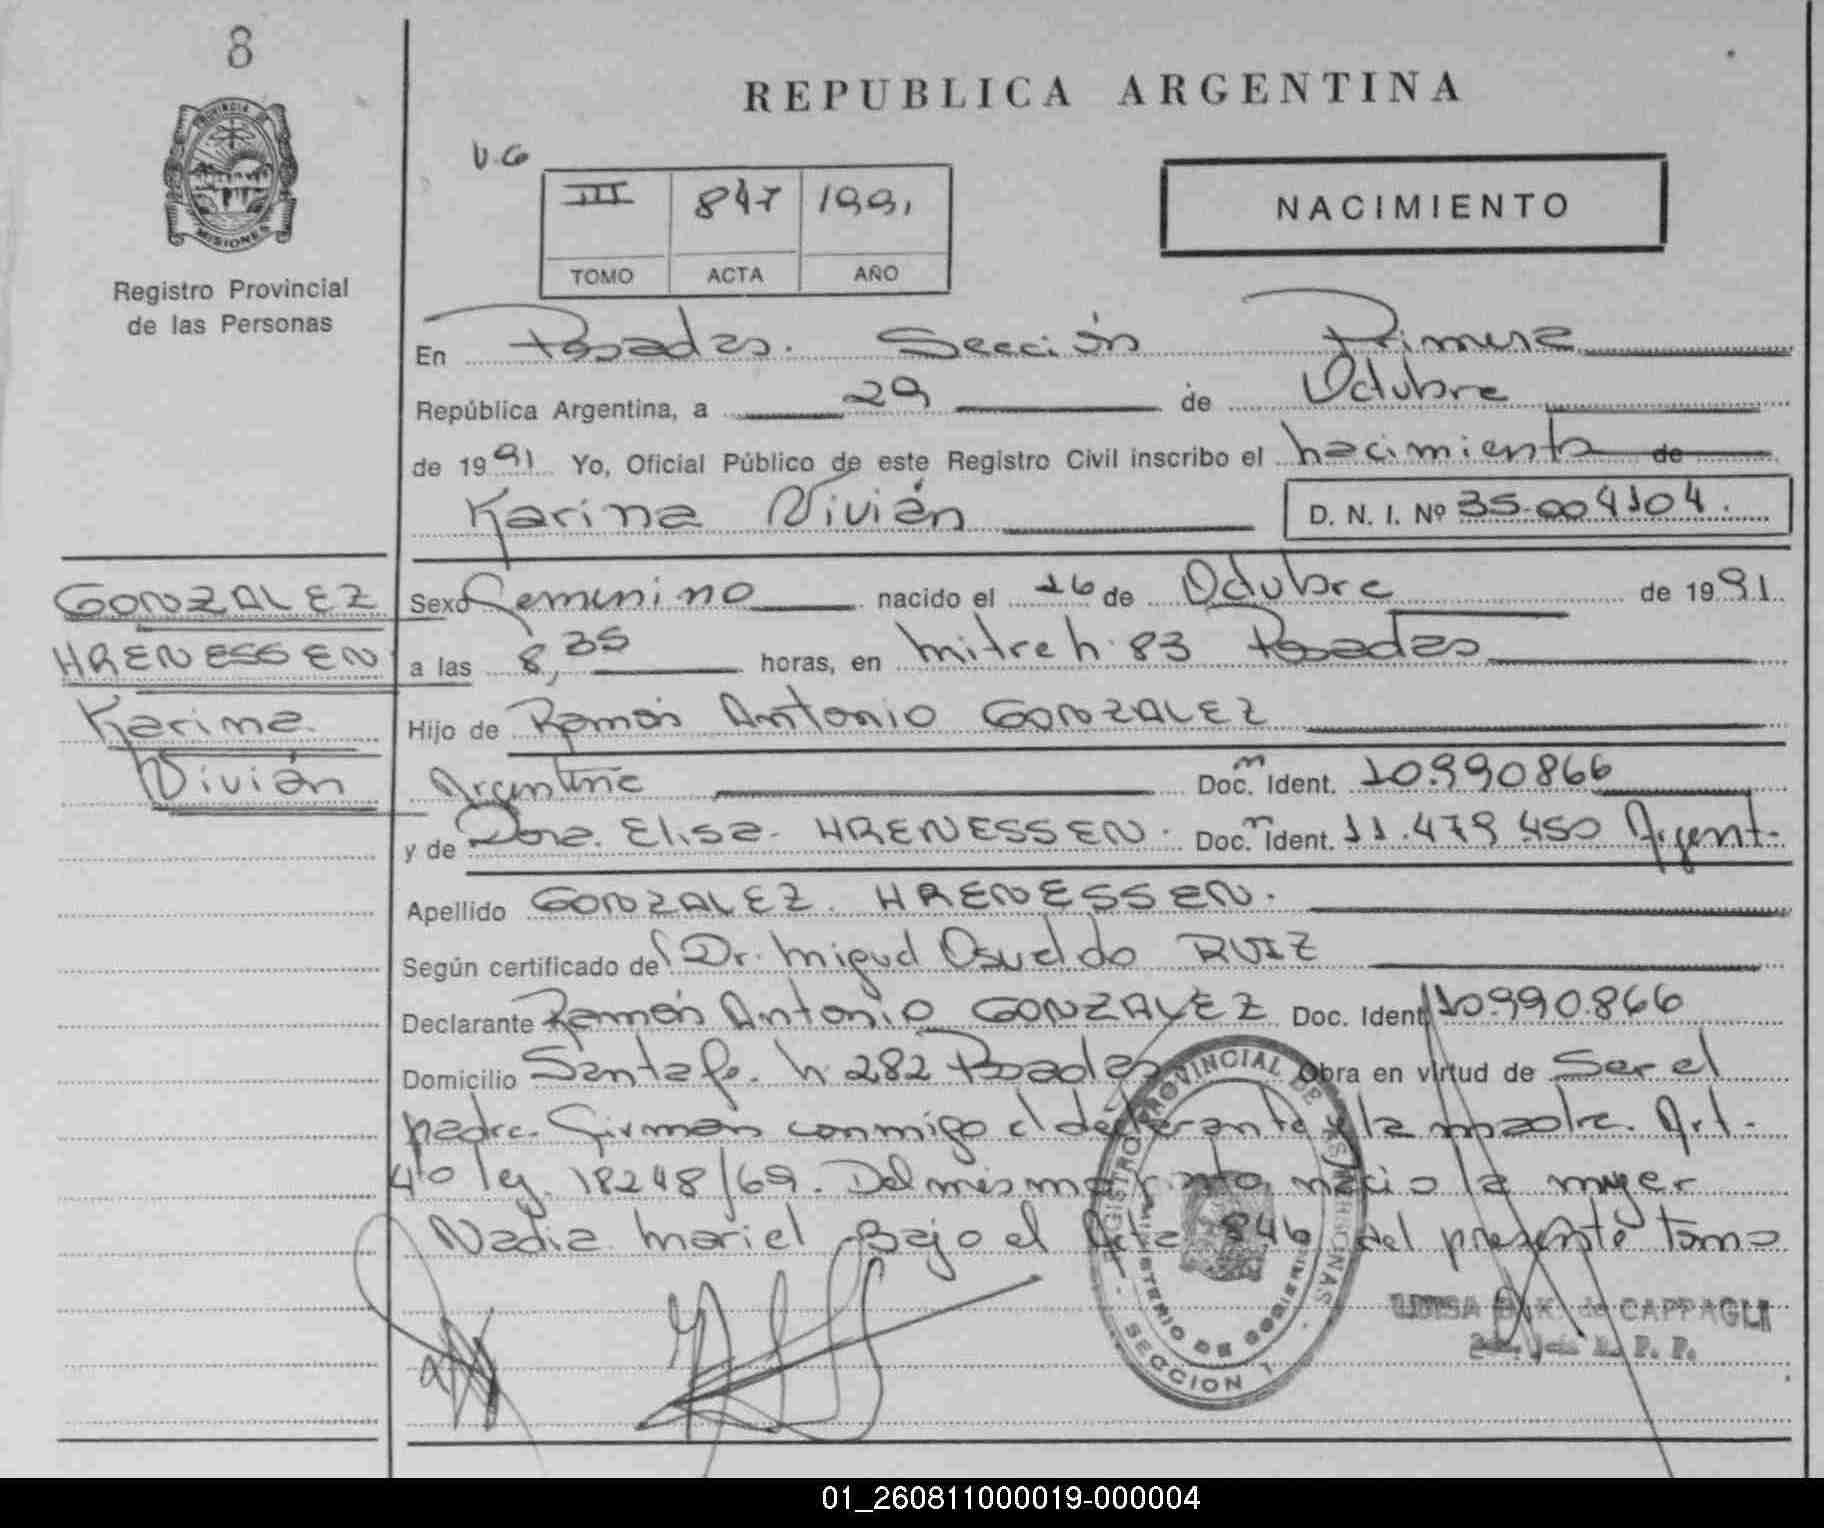 8
PROVINCIA DE
MISIONES
Registro Provincial
de las Personas
REPUBLICA ARGENTINA
III 847 1991
TOMO ACTA AÑO
NACIMIENTO
En Posadas. Sección Primera
República Argentina, a 29 de Octubre
de 1991 Yo, Oficial Público de este Registro Civil inscribo el nacimiento de
Karina Vivián D. N. I. Nº 35.004104.
GONZALEZ
HRENESSEN
Karina
Vivián
Sexo Femenino nacido el 16 de Octubre de 1991
a las 8,35 horas, en mitre n. 83 Posadas
Hijo de Ramón Antonio GONZALEZ
Argentino Doc. Ident. 10.990866
y de Dora Elisa HRENESSEN. Doc. Ident. 11.479 450 Argent.
Apellido GONZALEZ HRENESSEN.
Según certificado de Dr. Miguel Osvaldo RUIZ
Declarante Ramón Antonio GONZALEZ Doc. Ident 10.990.866
Domicilio Santa fe. n 282 Posadas Obra en virtud de Ser el
padre. Firman conmigo el declarante y la madre. Art.
4º ley. 18248/69. Del mismo parto nació la mujer
Nadia Mariel Bajo el Acta 846 del presente tomo
REGISTRO PROVINCIAL DE LAS PERSONAS
MINISTERIO DE GOBIERNO
SECCION 1
LUISA K. de CAPPAGLI
R. P. P.
01_260811000019-000004